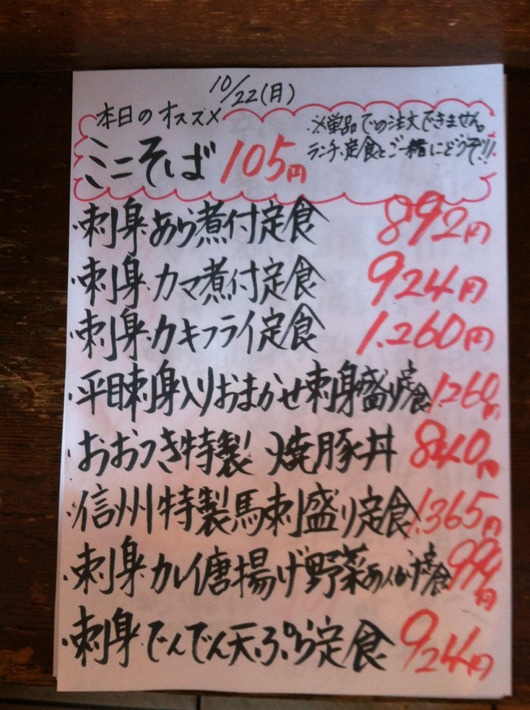 10/22(月)
本日のオススメ
※単品での注文できません。
ランチ、定食とご一緒にどうぞ!!
ミニそば 105円
・刺身・あら煮付定食 892円
・刺身・カマ煮付定食 924円
・刺身・カキフライ定食 1,260円
・平目刺身入りおまかせ刺身盛り定食 1,260円
・おおつき特製 焼豚丼 840円
・信州特製馬刺盛り定食 1,365円
・刺身・カレイ唐揚げ野菜あんかけ定食 994円
・刺身・でんでん天ぷら定食 924円